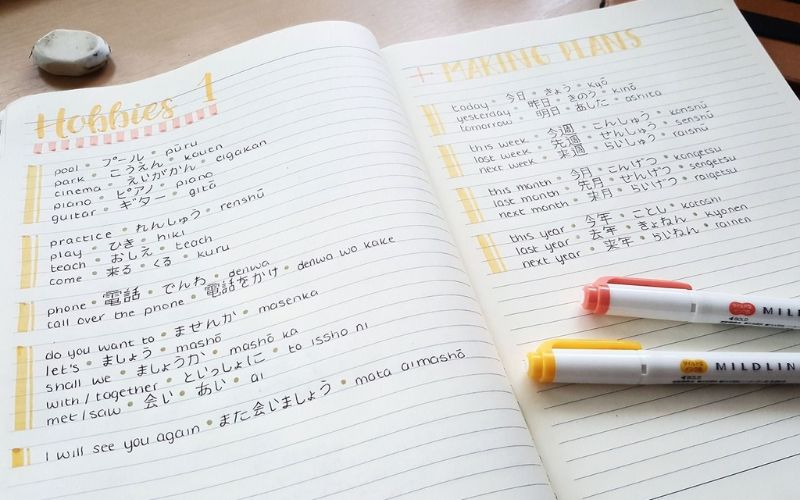 Hobbies 1
pool • プール • pūru
park • こうえん • kouen
cinema • えいがかん • eigakan
piano • ピアノ • piano
guitar • ギター • gitā
practice • れんしゅう • renshū
play • ひき • hiki
teach • おしえ • teach
come • 来る • くる • kuru
phone • 電話 • でんわ • denwa
call over the phone • 電話をかけ • denwa wo kake
do you want to • ませんか • masenka
let's • ましょう • mashō
shall we • ましょうか • mashō ka
with/together • といっしょに • to issho ni
met/saw • 会い • あい • ai
I will see you again • また会いましょう • mata aimashō
+ MAKING PLANS
today • 今日 • きょう • kyō
yesterday • 昨日 • きのう • kinō
tomorrow • 明日 • あした • ashita
this week • 今週 • こんしゅう • konshū
last week • 先週 • せんしゅう • senshū
next week • 来週 • らいしゅう • raishū
this month • 今月 • こんげつ • kongetsu
last month • 先月 • せんげつ • sengetsu
next month • 来月 • らいげつ • raigetsu
this year • 今年 • ことし • kotoshi
last year • 去年 • きょねん • kyonen
next year • 来年 • らいねん • rainen
MILDL
BOLD
MILDLIN
BOLD